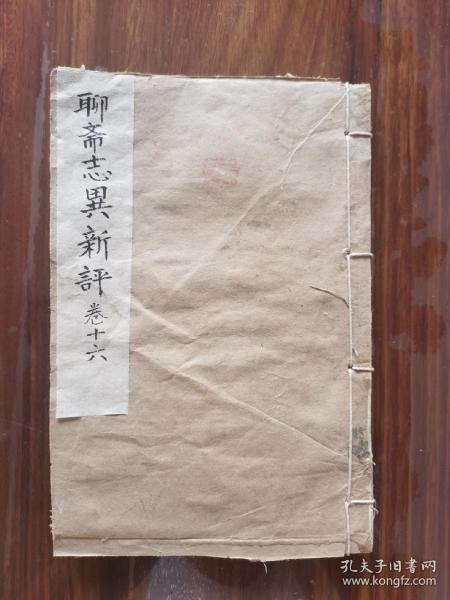 聊斋志異新評卷十六
孔夫子旧书网
www.kongfz.com